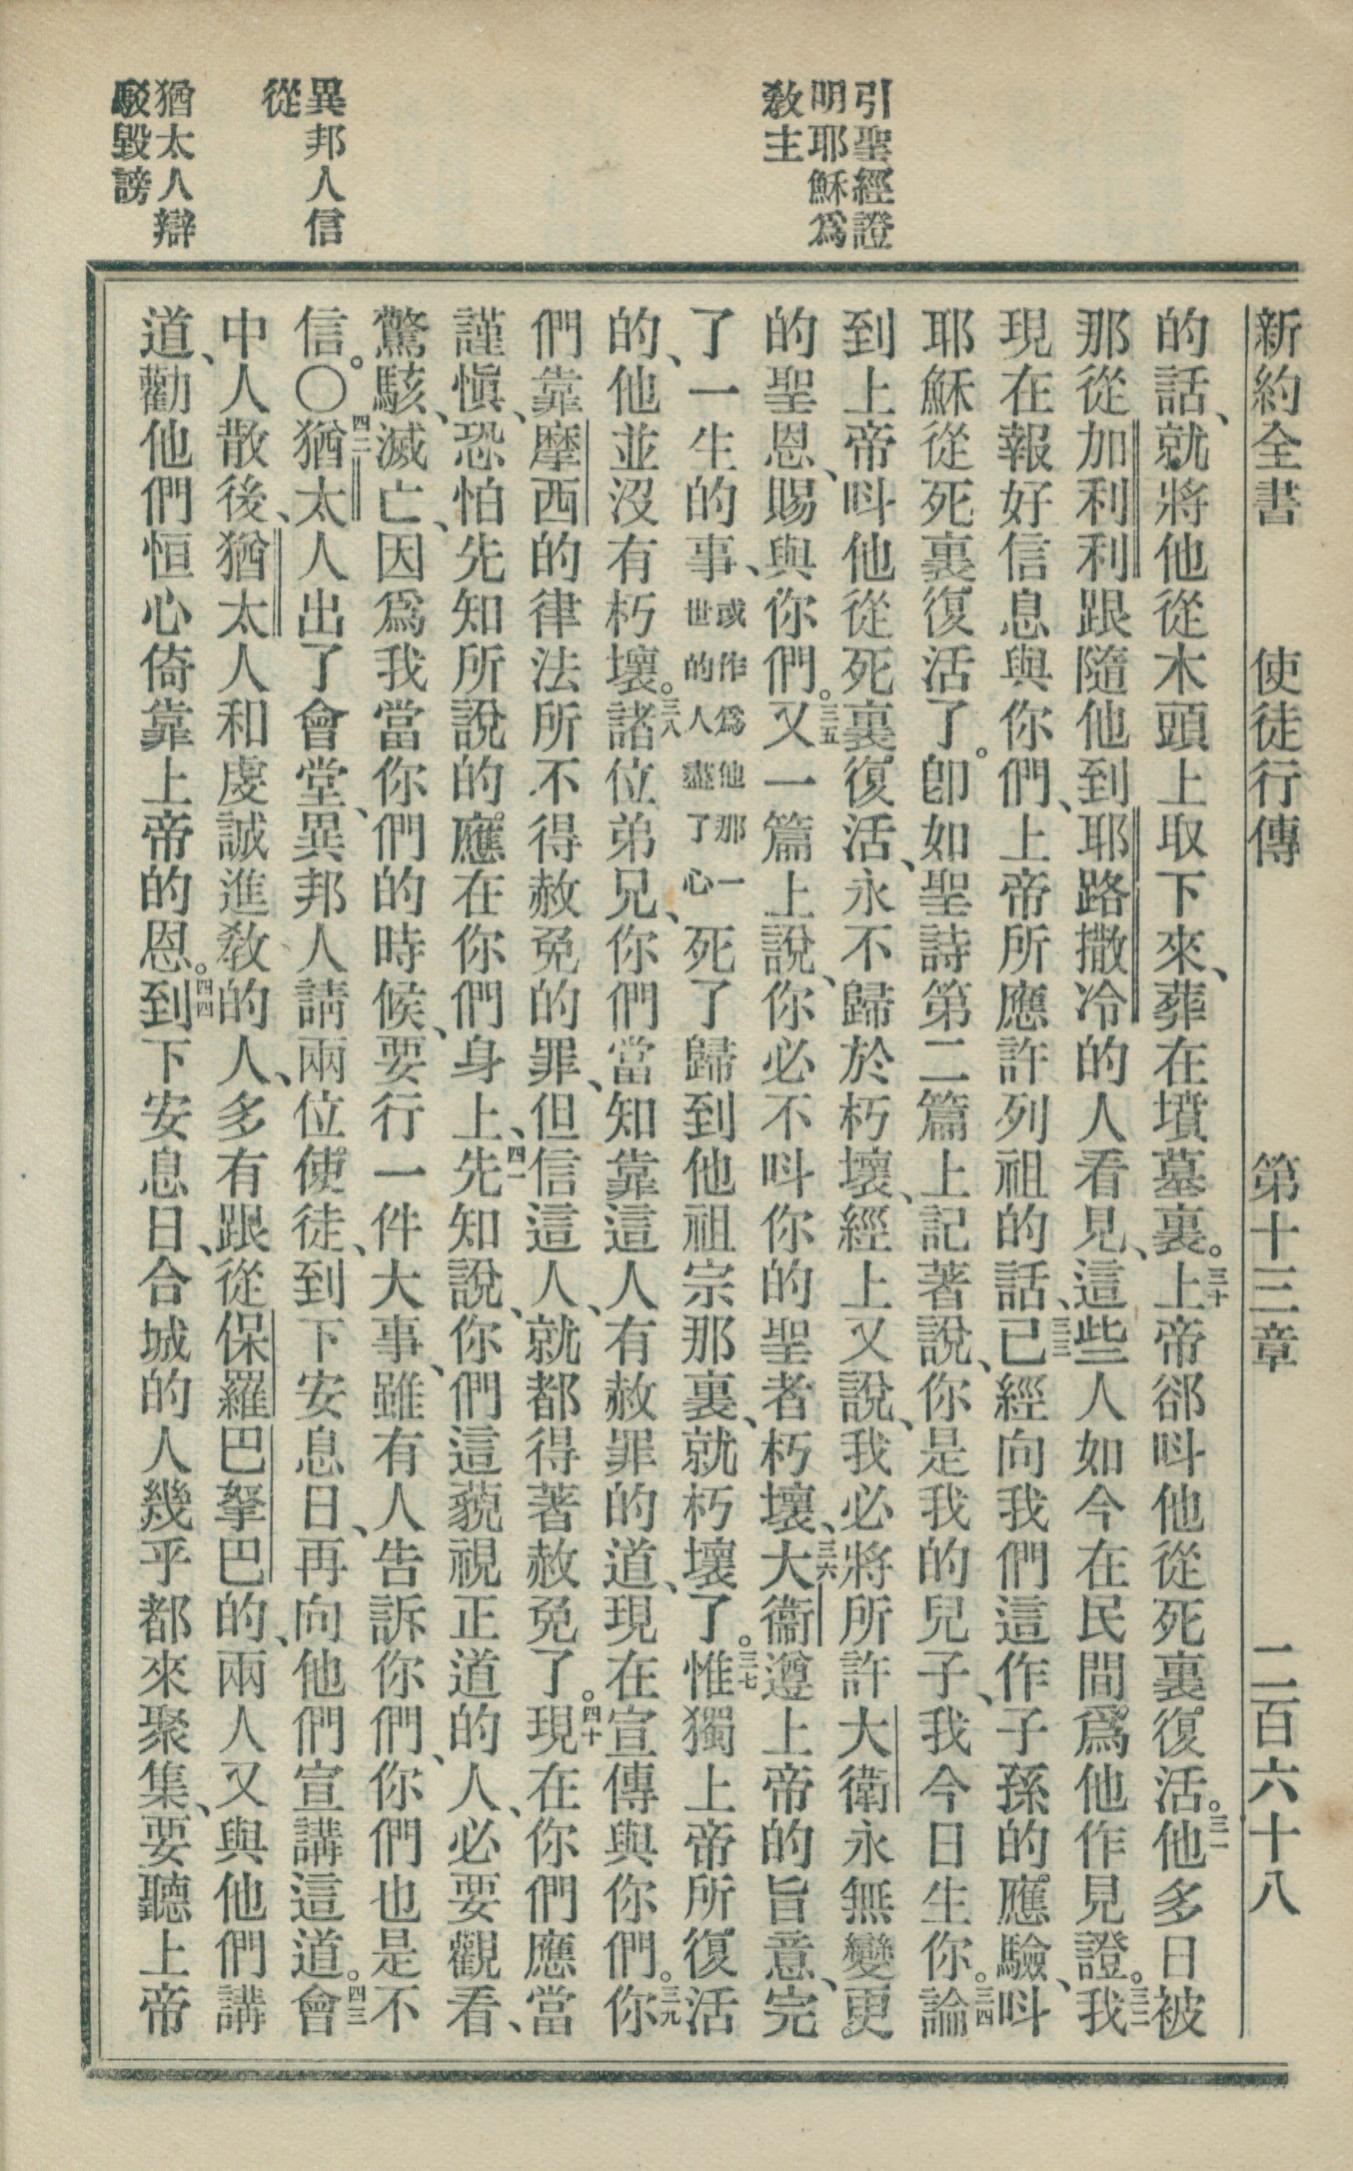 引聖經證
明耶穌爲
敎主
異邦人信
從
猶太人辯
駁毀謗
新約全書 使徒行傳 第十三章 二百六十八
的話、就將他從木頭上取下來、葬在墳墓裏。三十上帝郤呌他從死裏復活。三一他多日被
那從加利利跟隨他到耶路撒冷的人看見、這些人如今在民間爲他作見證。三二我
現在報好信息與你們、上帝所應許列祖的話、三三已經向我們這作子孫的應驗、呌
耶穌從死裏復活了。卽如聖詩第二篇上記著說、你是我的兒子、我今日生你。三四論
到上帝呌他從死裏復活、永不歸於朽壞、經上又說、我必將所許大衛永無變更
的聖恩、賜與你們。三五又一篇上說、你必不呌你的聖者朽壞、三六大衞遵上帝的旨意、完
了一生的事、或作爲他那一世的人盡了心死了歸到他祖宗那裏、就朽壞了。三七惟獨上帝所復活
的、他並沒有朽壞。三八諸位弟兄、你們當知靠這人有赦罪的道、現在宣傳與你們。三九你
們靠摩西的律法所不得赦免的罪、但信這人、就都得著赦免了。四十現在你們應當
謹愼、恐怕先知所說的應在你們身上、四一先知說、你們這藐視正道的人、必要觀看、
驚駭、滅亡、因爲我當你們的時候、要行一件大事、雖有人告訴你們、你們也是不
信。〇四二猶太人出了會堂、異邦人請兩位使徒、到下安息日、再向他們宣講這道。四三會
中人散後、猶太人和虔誠進敎的人、多有跟從保羅巴拏巴的、兩人又與他們講
道、勸他們恒心倚靠上帝的恩。四四到下安息日、合城的人幾乎都來聚集、要聽上帝